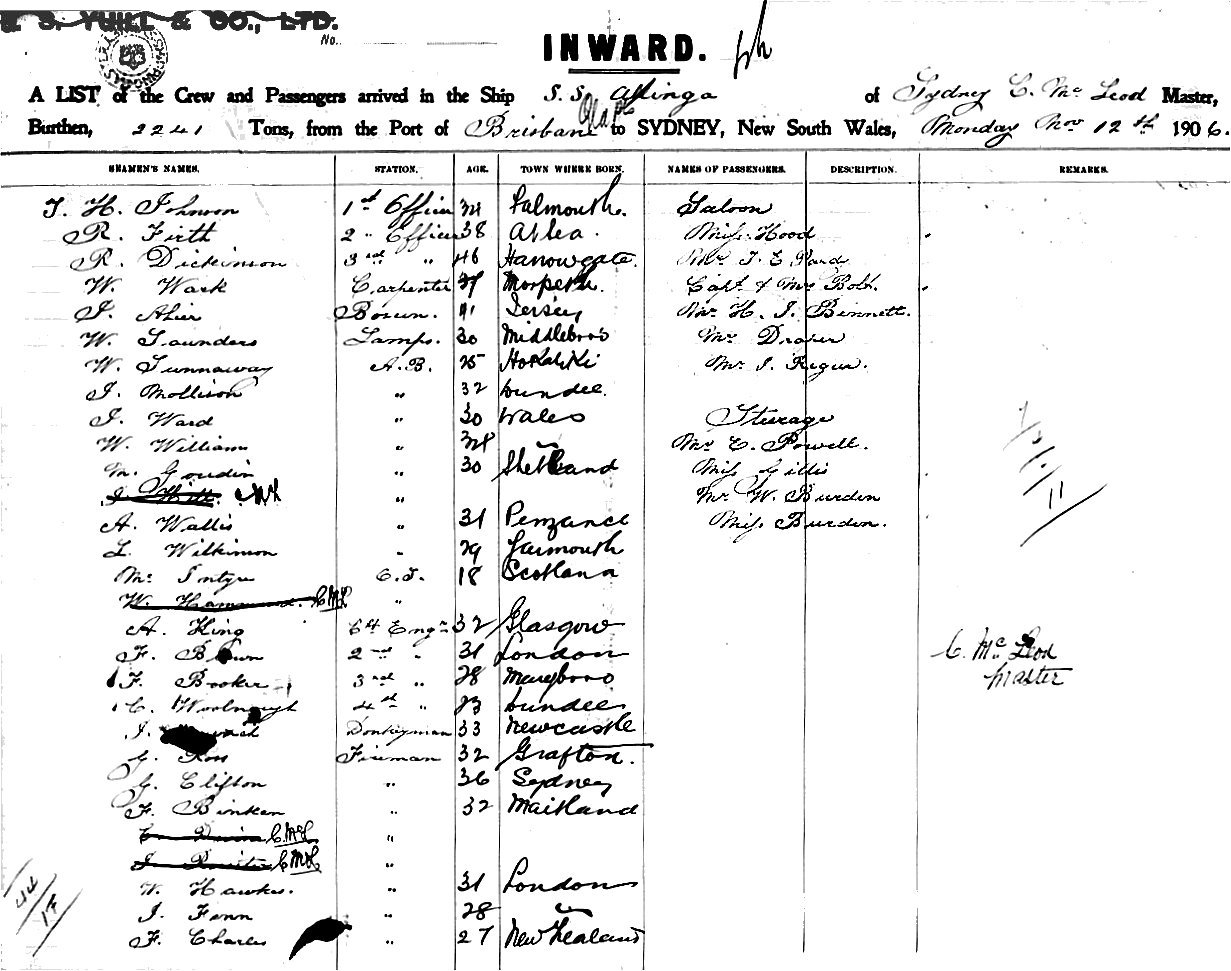 S. YUILL & CO., LTD.
No.
INWARD.
A LIST of the Crew and Passengers arrived in the Ship S.S. Aplinga of Sydney C. McLeod Master,
Burthen, 2241 Tons, from the Port of Brisbane to SYDNEY, New South Wales, Monday Nov 12th 1906.
SEAMEN'S NAMES. STATION. AGE. TOWN WHERE BORN. NAMES OF PASSENGERS. DESCRIPTION. REMARKS.
T. H. Johnson 1st Officer 34 Falmouth. Saloon
R. Firth 2 " Officer 38 Miss Hood
R. Dickinson 3rd " 46 Harrowgate. T. E. Ward
W. Wark Carpenter 37 Morpeth. Capt & Mrs Bolt.
J. Ahier Bosun. 41 Jersey Mr H. J. Bennett.
W. Saunders Lamps. 30 Middleboro Mr Draper
W. Tunnaway A.B. 25 Hokatiki Mr J.
J. Mollison " 32 Dundee.
J. Ward " 30 Wales Steerage
W. William " 34 " Mr C. Powell.
M. Goudin " 30 Shetland Miss Gillis
J. Hill. CML " Mr W. Burdin
A. Wallis " 31 Penzance Miss Burdin.
L. Wilkinson " 29 Yarmouth
McIntyre 18 Scotland
W. Hammond. CML "
A. King Ch Engr 32 Glasgow
F. Brown 2nd " 31 London C. McLeod
F. Booker 3rd " 28 Maryboro Master
C. Woolnough 4th " 23 Dundee
J. Donkeyman 33 Newcastle
G. Ross Fireman 32 Grafton.
G. Clifton " 36 Sydney
F. Binken " 32 Maitland
CML "
J. CML "
W. Hawkes. " 31 London
J. Fenn " 28 "
F. Charles " 27 New Zealand
44
17